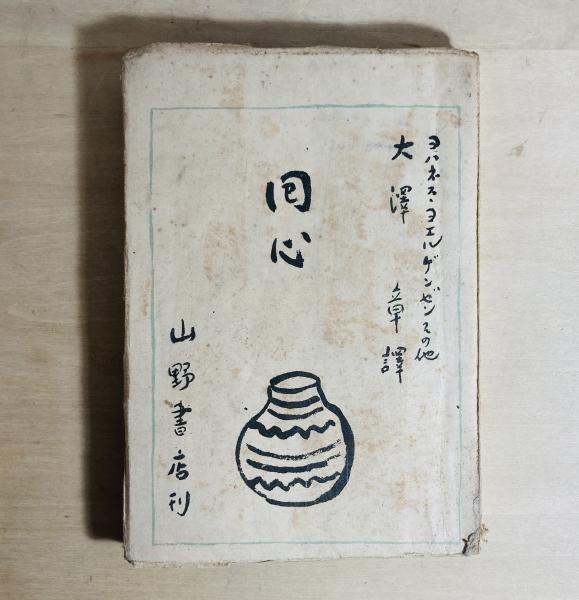 ヨハネス・ヨエルゲンゼンスの他
大澤章譯
回心
山野書店刊